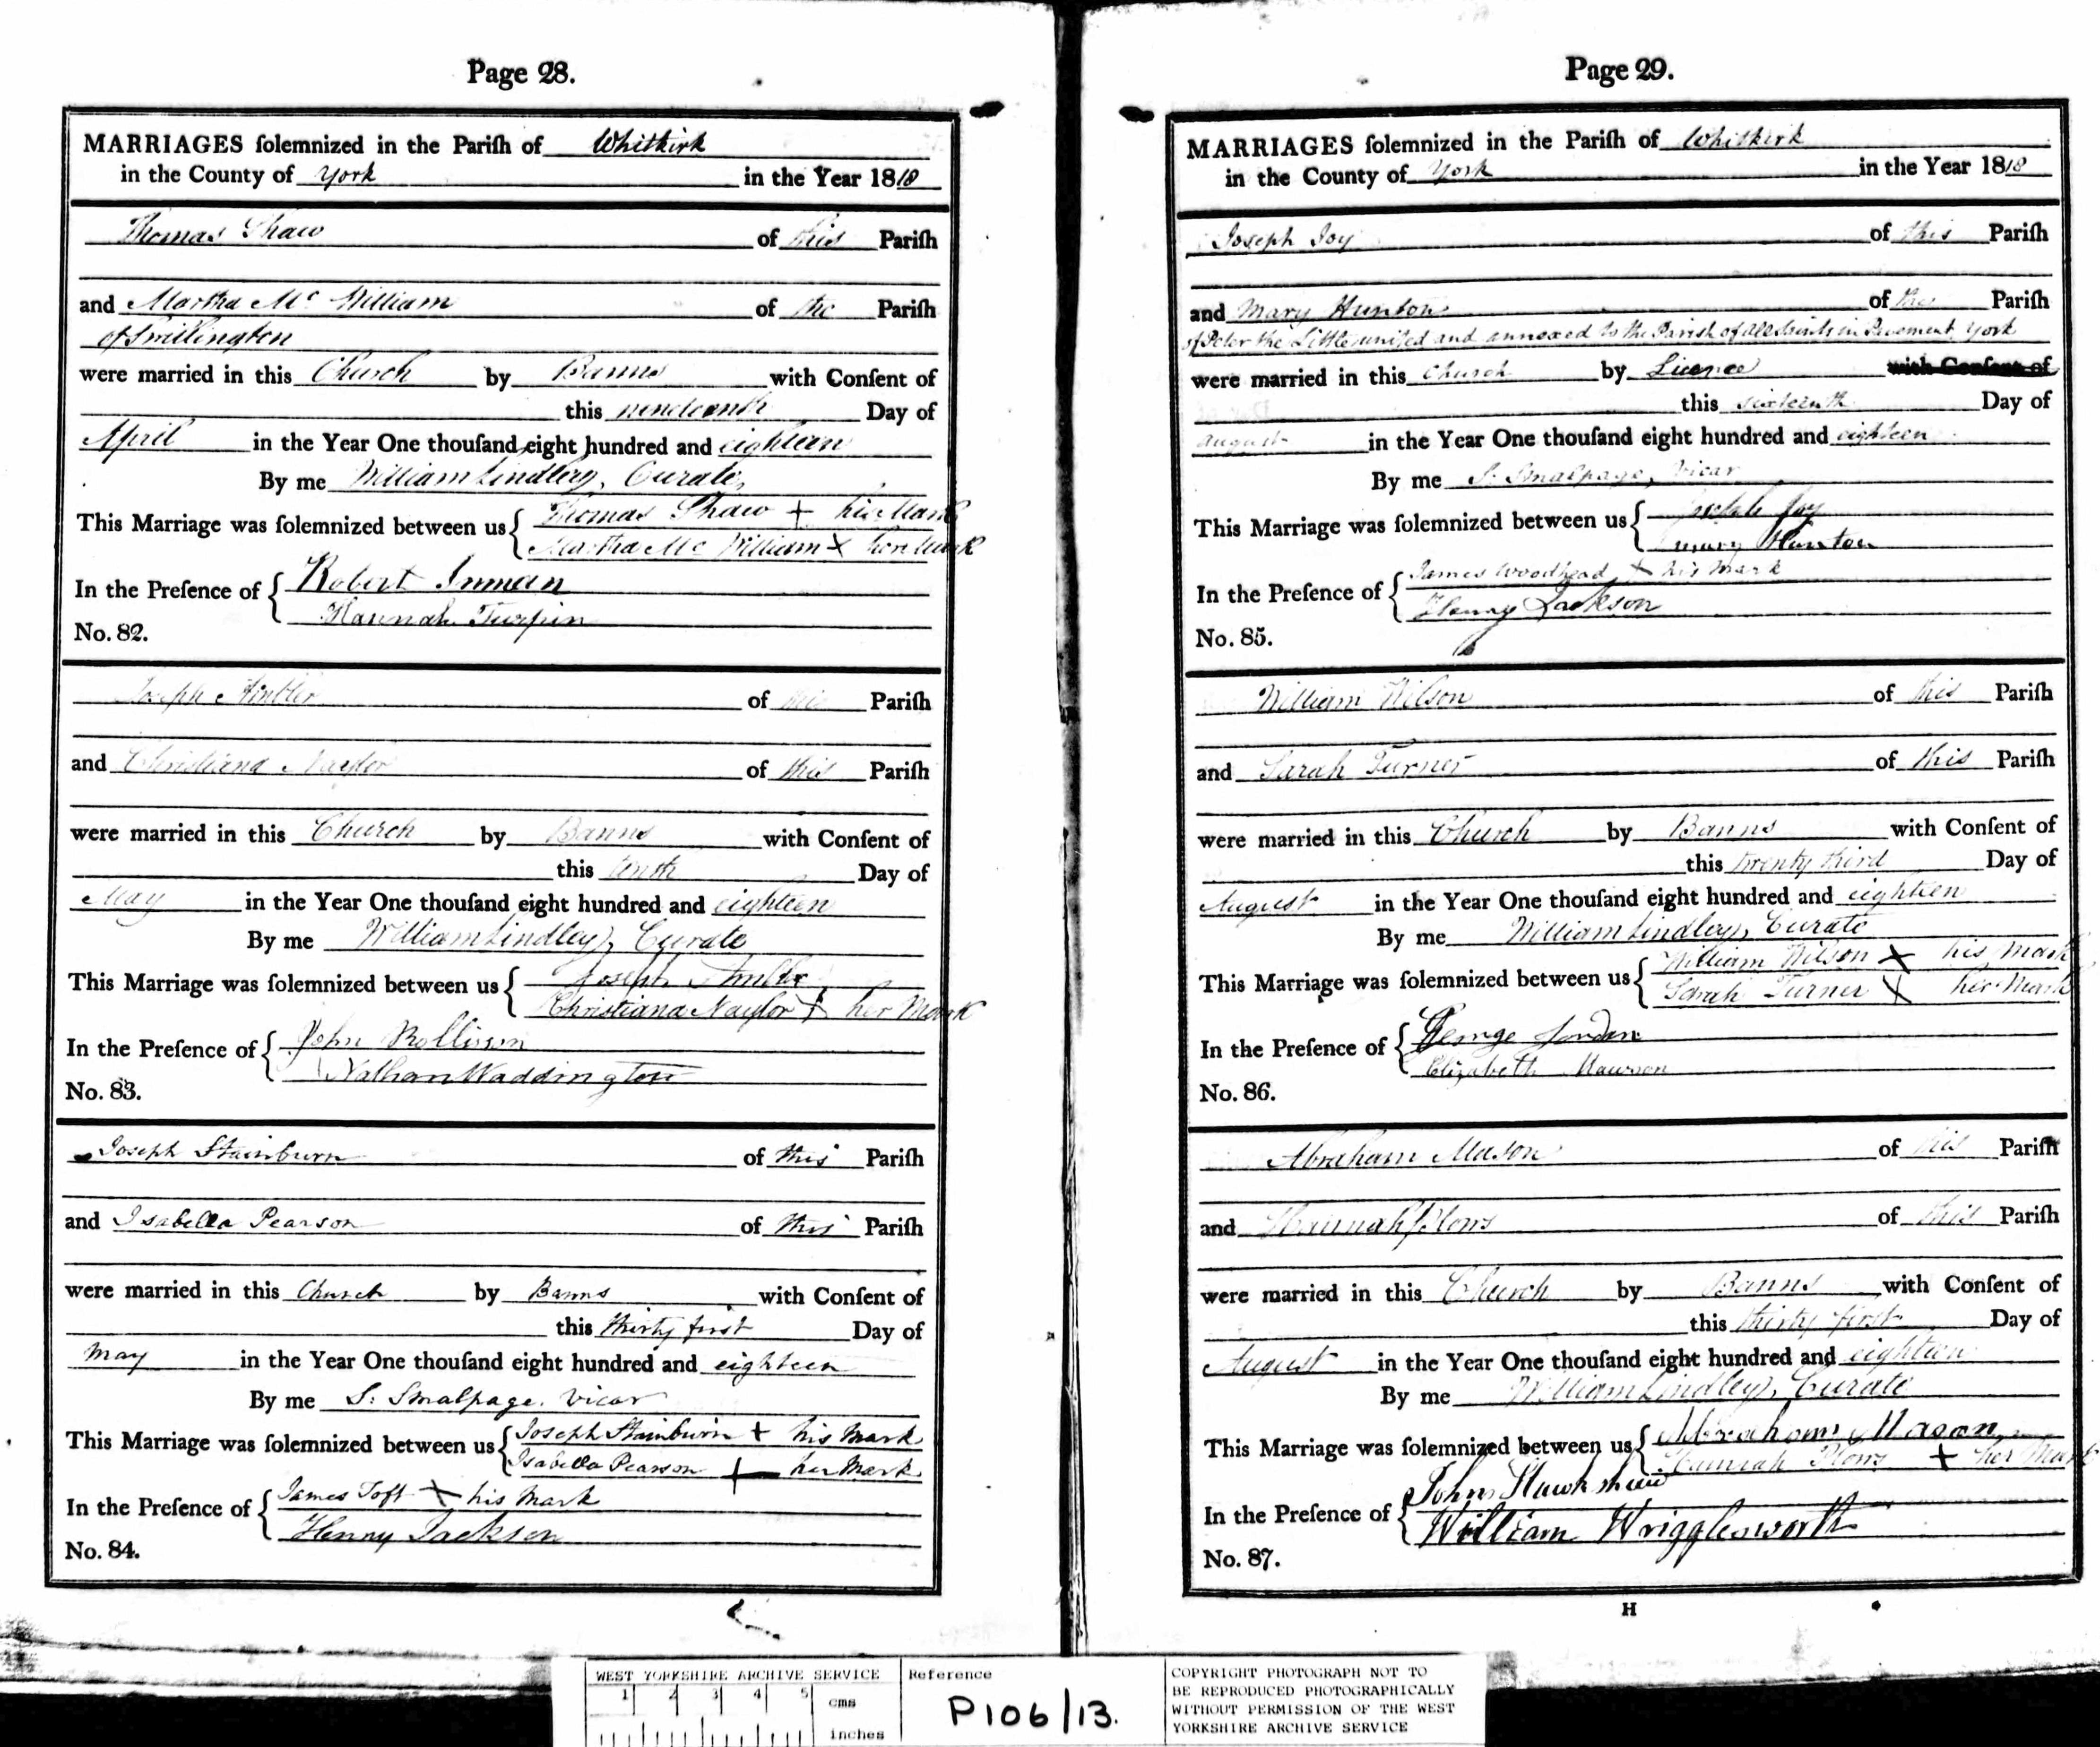 Page 28.
MARRIAGES ſolemnized in the Pariſh of Whitkirk
in the County of York in the Year 1818
Thomas Shaw of this Pariſh
and Martha Mc William of the Pariſh
of Swillington
were married in this Church by Banns with Conſent of
this nineteenth Day of
April in the Year One thouſand eight hundred and eighteen
By me William Lindley, Curate,
This Marriage was ſolemnized between us Thomas Shaw + his Mark
Martha Mc William X her Mark
In the Preſence of Robert Inman
Hannah Turpin
No. 82.
Joseph Ambler of this Pariſh
and Christiana Naylor of this Pariſh
were married in this Church by Banns with Conſent of
this tenth Day of
May in the Year One thouſand eight hundred and eighteen
By me William Lindley, Curate
This Marriage was ſolemnized between us Joseph Ambler
Christiana Naylor X her Mark
In the Preſence of John Rollison
Nathan Waddington
No. 83.
Joseph Stainburn of this Pariſh
and Isabella Pearson of this Pariſh
were married in this Church by Banns with Conſent of
this thirty first Day of
May in the Year One thouſand eight hundred and eighteen
By me S. Smalpage, Vicar
This Marriage was ſolemnized between us Joseph Stainburn + his Mark
Isabella Pearson + her Mark
In the Preſence of James Toft X his Mark
Henry Jackson
No. 84.
Page 29.
MARRIAGES ſolemnized in the Pariſh of Whitkirk
in the County of York in the Year 1818
Joseph Joy of this Pariſh
and Mary Hunton of the Pariſh
of Peter the Little united and annexed to the Parish of All Saints in Pavement York
were married in this Church by Licence with Conſent of
this sixteenth Day of
August in the Year One thouſand eight hundred and eighteen
By me S. Smalpage, Vicar
This Marriage was ſolemnized between us Joseph Joy
Mary Hunton
In the Preſence of James Woodhead X his Mark
Henry Jackson
No. 85.
William Wilson of this Pariſh
and Sarah Turner of this Pariſh
were married in this Church by Banns with Conſent of
this twenty third Day of
August in the Year One thouſand eight hundred and eighteen
By me William Lindley, Curate
This Marriage was ſolemnized between us William Wilson X his Mark
Sarah Turner X her Mark
In the Preſence of George Jordan
Elizabeth Mawson
No. 86.
Abraham Mason of this Pariſh
and Hannah Plows of this Pariſh
were married in this Church by Banns with Conſent of
this thirty first Day of
August in the Year One thouſand eight hundred and eighteen
By me William Lindley, Curate
This Marriage was ſolemnized between us Abraham Mason
Hannah Plows + her Mark
In the Preſence of John Hawkshaw
William Wrigglesworth
No. 87.
H
WEST YORKSHIRE ARCHIVE SERVICE
1 2 3 4 5 cms
inches
Reference
P106/13.
COPYRIGHT PHOTOGRAPH NOT TO
BE REPRODUCED PHOTOGRAPHICALLY
WITHOUT PERMISSION OF THE WEST
YORKSHIRE ARCHIVE SERVICE